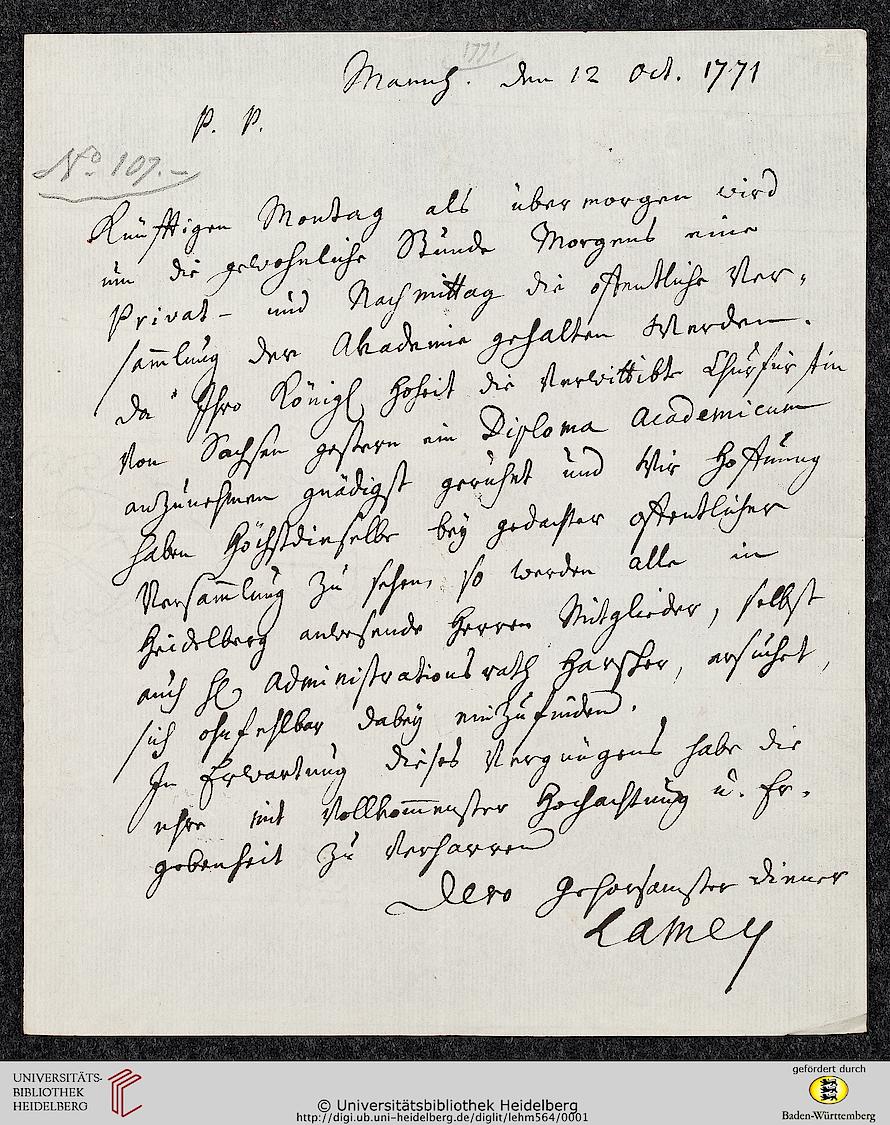 1771
Mannh. den 12 Oct. 1771
P. P.
No. 107.-
Künfftigen Montag als übermorgen wird
um die gewohnliche Stunde Morgens eine
Privat- und Nachmittag die offentliche Ver-
sammlung der Akademie gehalten werden.
da Ihro Königl. Hoheit die verwittibte Churfürstin
von Sachsen gestern ein Diploma Academicum
anzunehmen gnädigst geruhet und wir Hoffnung
haben Höchstdieselbe bey gedachter offentlicher
Versammlung zu sehen, so werden alle in
Heidelberg anwesende Herren Mitglieder, selbst
auch H. Administrationsrath Harscher, ersuchet,
sich ohnfehlbar dabey einzufinden.
In Erwartung dieses Vergnügens habe die
ehre mit vollkommenster Hochachtung u. Er-
gebenheit zu verharren
Dero gehorsamster diener
Lamey
UNIVERSITÄTS-
BIBLIOTHEK
HEIDELBERG
© Universitätsbibliothek Heidelberg
http://digi.ub.uni-heidelberg.de/diglit/lehm564/0001
gefördert durch
Baden-Württemberg